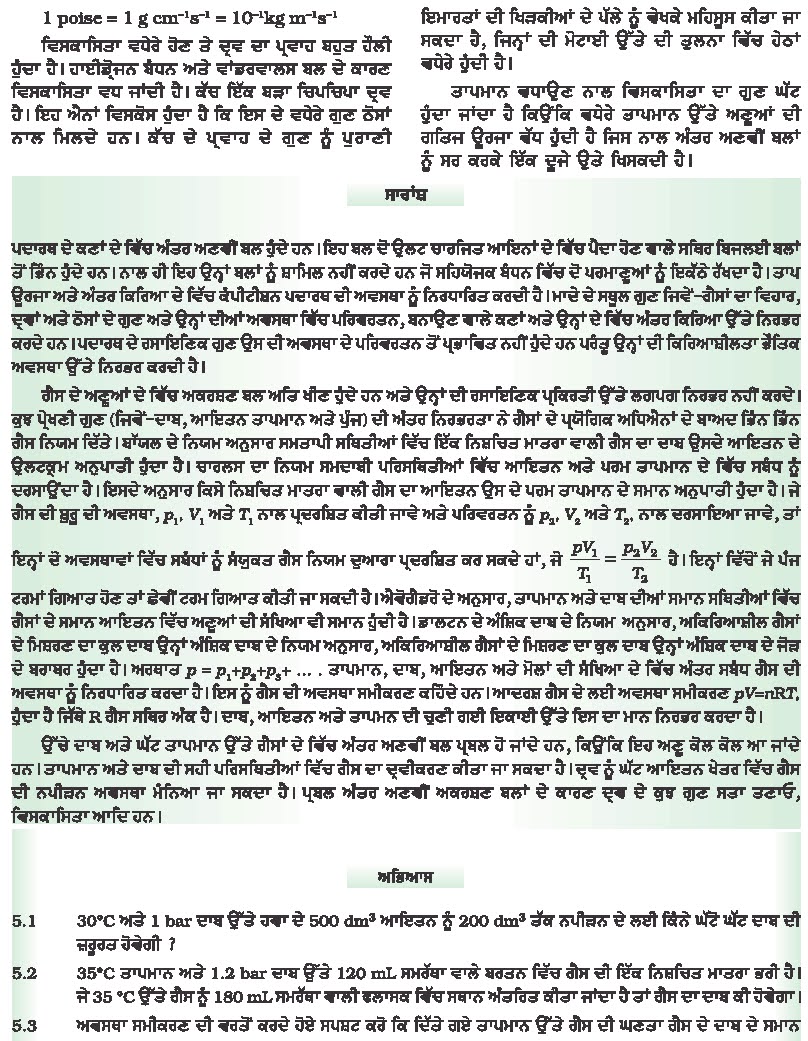 1 poise = 1 g cm⁻¹s⁻¹ = 10⁻¹kg m⁻¹s⁻¹
ਵਿਸਕਾਸਿਤਾ ਵਧੇਰੇ ਹੋਣ ਤੇ ਦ੍ਰਵ ਦਾ ਪ੍ਰਵਾਹ ਬਹੁਤ ਹੌਲੀ
ਹੁੰਦਾ ਹੈ। ਹਾਈਡ੍ਰੋਜਨ ਬੰਧਨ ਅਤੇ ਵਾਂਡਰਵਾਲਸ ਬਲ ਦੇ ਕਾਰਣ
ਵਿਸਕਾਸਿਤਾ ਵਧ ਜਾਂਦੀ ਹੈ। ਕੱਚ ਇੱਕ ਬੜਾ ਚਿਪਚਿਪਾ ਦ੍ਰਵ
ਹੈ। ਇਹ ਐਨਾਂ ਵਿਸਕੋਸ ਹੁੰਦਾ ਹੈ ਕਿ ਇਸ ਦੇ ਵਧੇਰੇ ਗੁਣ ਠੋਸਾਂ
ਨਾਲ ਮਿਲਦੇ ਹਨ। ਕੱਚ ਦੇ ਪ੍ਰਵਾਹ ਦੇ ਗੁਣ ਨੂੰ ਪੁਰਾਣੀ
ਇਮਾਰਤਾਂ ਦੀ ਖਿੜਕੀਆਂ ਦੇ ਪੱਲੇ ਨੂੰ ਵੇਖਕੇ ਮਹਿਸੂਸ ਕੀਤਾ ਜਾ
ਸਕਦਾ ਹੈ, ਜਿਨ੍ਹਾਂ ਦੀ ਮੋਟਾਈ ਉੱਤੇ ਦੀ ਤੁਲਨਾ ਵਿੱਚ ਹੇਠਾਂ
ਵਧੇਰੇ ਹੁੰਦੀ ਹੈ।
ਤਾਪਮਾਨ ਵਧਾਉਣ ਨਾਲ ਵਿਸਕਾਸਿਤਾ ਦਾ ਗੁਣ ਘੱਟ
ਹੁੰਦਾ ਜਾਂਦਾ ਹੈ ਕਿਉਂਕਿ ਵਧੇਰੇ ਤਾਪਮਾਨ ਉੱਤੇ ਅਣੂਆਂ ਦੀ
ਗਤਿਜ ਊਰਜਾ ਵੱਧ ਹੁੰਦੀ ਹੈ ਜਿਸ ਨਾਲ ਅੰਤਰ ਅਣਵੀਂ ਬਲਾਂ
ਨੂੰ ਸਰ ਕਰਕੇ ਇੱਕ ਦੂਜੇ ਉਤੇ ਖਿਸਕਦੀ ਹੈ।
ਸਾਰਾਂਸ਼
ਪਦਾਰਥ ਦੇ ਕਣਾਂ ਦੇ ਵਿੱਚ ਅੰਤਰ ਅਣਵੀਂ ਬਲ ਹੁੰਦੇ ਹਨ। ਇਹ ਬਲ ਦੋ ਉਲਟ ਚਾਰਜਿਤ ਆਇਨਾਂ ਦੇ ਵਿੱਚ ਪੈਦਾ ਹੋਣ ਵਾਲੇ ਸਥਿਰ ਬਿਜਲਈ ਬਲਾਂ
ਤੋਂ ਭਿੰਨ ਹੁੰਦੇ ਹਨ। ਨਾਲ ਹੀ ਇਹ ਉਨ੍ਹਾਂ ਬਲਾਂ ਨੂੰ ਸ਼ਾਮਿਲ ਨਹੀਂ ਕਰਦੇ ਹਨ ਜੋ ਸਹਿਯੋਜਕ ਬੰਧਨ ਵਿੱਚ ਦੋ ਪਰਮਾਣੂਆਂ ਨੂੰ ਇਕੱਠੇ ਰੱਖਦਾ ਹੈ। ਤਾਪ
ਊਰਜਾ ਅਤੇ ਅੰਤਰ ਕਿਰਿਆ ਦੇ ਵਿੱਚ ਕੰਪੀਟੀਸ਼ਨ ਪਦਾਰਥ ਦੀ ਅਵਸਥਾ ਨੂੰ ਨਿਰਧਾਰਿਤ ਕਰਦੀ ਹੈ। ਮਾਦੇ ਦੇ ਸਥੂਲ ਗੁਣ ਜਿਵੇਂ-ਗੈਸਾਂ ਦਾ ਵਿਹਾਰ,
ਦ੍ਰਵਾਂ ਅਤੇ ਠੋਸਾਂ ਦੇ ਗੁਣ ਅਤੇ ਉਨ੍ਹਾਂ ਦੀਆਂ ਅਵਸਥਾ ਵਿੱਚ ਪਰਿਵਰਤਨ, ਬਨਾਉਣ ਵਾਲੇ ਕਣਾਂ ਅਤੇ ਉਨ੍ਹਾਂ ਦੇ ਵਿੱਚ ਅੰਤਰ ਕਿਰਿਆ ਉੱਤੇ ਨਿਰਭਰ
ਕਰਦੇ ਹਨ। ਪਦਾਰਥ ਦੇ ਰਸਾਇਣਿਕ ਗੁਣ ਉਸ ਦੀ ਅਵਸਥਾ ਦੇ ਪਰਿਵਰਤਨ ਤੋਂ ਪ੍ਰਭਾਵਿਤ ਨਹੀਂ ਹੁੰਦੇ ਹਨ ਪਰੰਤੂ ਉਨ੍ਹਾਂ ਦੀ ਕਿਰਿਆਸ਼ੀਲਤਾ ਭੌਤਿਕ
ਅਵਸਥਾ ਉੱਤੇ ਨਿਰਭਰ ਕਰਦੀ ਹੈ।
ਗੈਸ ਦੇ ਅਣੂਆਂ ਦੇ ਵਿੱਚ ਅਕਰਸ਼ਣ ਬਲ ਅਤਿ ਖੀਣ ਹੁੰਦੇ ਹਨ ਅਤੇ ਉਨ੍ਹਾਂ ਦੀ ਰਸਾਇਣਿਕ ਪ੍ਰਕਿਰਤੀ ਉੱਤੇ ਲਗਪਗ ਨਿਰਭਰ ਨਹੀਂ ਕਰਦੇ।
ਕੁਝ ਪ੍ਰੇਖਣੀ ਗੁਣ (ਜਿਵੇਂ-ਦਾਬ, ਆਇਤਨ ਤਾਪਮਾਨ ਅਤੇ ਪੁੰਜ) ਦੀ ਅੰਤਰ ਨਿਰਭਰਤਾ ਨੇ ਗੈਸਾਂ ਦੇ ਪ੍ਰਯੋਗਿਕ ਅਧਿਐਨਾਂ ਦੇ ਬਾਅਦ ਭਿੰਨ ਭਿੰਨ
ਗੈਸ ਨਿਯਮ ਦਿੱਤੇ। ਬੱਾਯਲ ਦੇ ਨਿਯਮ ਅਨੁਸਾਰ ਸਮਤਾਪੀ ਸਥਿਤੀਆਂ ਵਿੱਚ ਇੱਕ ਨਿਸ਼ਚਿਤ ਮਾਤਰਾ ਵਾਲੀ ਗੈਸ ਦਾ ਦਾਬ ਉਸਦੇ ਆਇਤਨ ਦੇ
ਉਲਟਕ੍ਰਮ ਅਨੁਪਾਤੀ ਹੁੰਦਾ ਹੈ। ਚਾਰਲਸ ਦਾ ਨਿਯਮ ਸਮਦਾਬੀ ਪਰਿਸਥਿਤੀਆਂ ਵਿੱਚ ਆਇਤਨ ਅਤੇ ਪਰਮ ਤਾਪਮਾਨ ਦੇ ਵਿੱਚ ਸਬੰਧ ਨੂੰ
ਦਰਸਾਉਂਦਾ ਹੈ। ਇਸਦੇ ਅਨੁਸਾਰ ਕਿਸੇ ਨਿਸ਼ਚਿਤ ਮਾਤਰਾ ਵਾਲੀ ਗੈਸ ਦਾ ਆਇਤਨ ਉਸ ਦੇ ਪਰਮ ਤਾਪਮਾਨ ਦੇ ਸਮਾਨ ਅਨੁਪਾਤੀ ਹੁੰਦਾ ਹੈ। ਜੇ
ਗੈਸ ਦੀ ਸ਼ੁਰੂ ਦੀ ਅਵਸਥਾ, p₁, V₁ ਅਤੇ T₁ ਨਾਲ ਪ੍ਰਦਰਸ਼ਿਤ ਕੀਤੀ ਜਾਵੇ ਅਤੇ ਪਰਿਵਰਤਨ ਨੂੰ p₂, V₂ ਅਤੇ T₂, ਨਾਲ ਦਰਸਾਇਆ ਜਾਵੇ, ਤਾਂ
ਇਨ੍ਹਾਂ ਦੋ ਅਵਸਥਾਵਾਂ ਵਿੱਚ ਸਬੰਧਾਂ ਨੂੰ ਸੰਯੁਕਤ ਗੈਸ ਨਿਯਮ ਦੁਆਰਾ ਪ੍ਰਦਰਸ਼ਿਤ ਕਰ ਸਕਦੇ ਹਾਂ, ਜੋ pV₁/T₁ = p₂V₂/T₂ ਹੈ। ਇਨ੍ਹਾਂ ਵਿੱਚੋਂ ਜੇ ਪੰਜ
ਟਰਮਾਂ ਗਿਆਤ ਹੋਣ ਤਾਂ ਛੇਵੀਂ ਟਰਮ ਗਿਆਤ ਕੀਤੀ ਜਾ ਸਕਦੀ ਹੈ। ਐਵੋਗੈਡਰੋ ਦੇ ਅਨੁਸਾਰ, ਤਾਪਮਾਨ ਅਤੇ ਦਾਬ ਦੀਆਂ ਸਮਾਨ ਸਥਿਤੀਆਂ ਵਿੱਚ
ਗੈਸਾਂ ਦੇ ਸਮਾਨ ਆਇਤਨ ਵਿੱਚ ਅਣੂਆਂ ਦੀ ਸੰਖਿਆ ਵੀ ਸਮਾਨ ਹੁੰਦੀ ਹੈ। ਡਾਲਟਨ ਦੇ ਅੰਸ਼ਿਕ ਦਾਬ ਦੇ ਨਿਯਮ ਅਨੁਸਾਰ, ਅਕਿਰਿਆਸ਼ੀਲ ਗੈਸਾਂ
ਦੇ ਮਿਸ਼ਰਣ ਦਾ ਕੁਲ ਦਾਬ ਉਨ੍ਹਾਂ ਅੰਸ਼ਿਕ ਦਾਬ ਦੇ ਨਿਯਮ ਅਨੁਸਾਰ, ਅਕਿਰਿਆਸ਼ੀਲ ਗੈਸਾਂ ਦੇ ਮਿਸ਼ਰਣ ਦਾ ਕੁਲ ਦਾਬ ਉਨ੍ਹਾਂ ਅੰਸ਼ਿਕ ਦਾਬ ਦੇ ਜੋੜ
ਦੇ ਬਰਾਬਰ ਹੁੰਦਾ ਹੈ। ਅਰਥਾਤ p = p₁+p₂+p₃+ ... . ਤਾਪਮਾਨ, ਦਾਬ, ਆਇਤਨ ਅਤੇ ਮੋਲਾਂ ਦੀ ਸੰਖਿਆ ਦੇ ਵਿੱਚ ਅੰਤਰ ਸਬੰਧ ਗੈਸ ਦੀ
ਅਵਸਥਾ ਨੂੰ ਨਿਰਧਾਰਿਤ ਕਰਦਾ ਹੈ। ਇਸ ਨੂੰ ਗੈਸ ਦੀ ਅਵਸਥਾ ਸਮੀਕਰਣ ਕਹਿੰਦੇ ਹਨ। ਆਦਰਸ਼ ਗੈਸ ਦੇ ਲਈ ਅਵਸਥਾ ਸਮੀਕਰਣ pV=nRT,
ਹੁੰਦਾ ਹੈ ਜਿੱਥੇ R ਗੈਸ ਸਥਿਰ ਅੰਕ ਹੈ। ਦਾਬ, ਆਇਤਨ ਅਤੇ ਤਾਪਮਨ ਦੀ ਚੁਣੀ ਗਈ ਇਕਾਈ ਉੱਤੇ ਇਸ ਦਾ ਮਾਨ ਨਿਰਭਰ ਕਰਦਾ ਹੈ।
ਉੱਚੇ ਦਾਬ ਅਤੇ ਘੱਟ ਤਾਪਮਾਨ ਉੱਤੇ ਗੈਸਾਂ ਦੇ ਵਿੱਚ ਅੰਤਰ ਅਣਵੀਂ ਬਲ ਪ੍ਰਬਲ ਹੋ ਜਾਂਦੇ ਹਨ, ਕਿਉਂਕਿ ਇਹ ਅਣੂ ਕੋਲ ਕੋਲ ਆ ਜਾਂਦੇ
ਹਨ। ਤਾਪਮਾਨ ਅਤੇ ਦਾਬ ਦੀ ਸਹੀ ਪਰਿਸਥਿਤੀਆਂ ਵਿੱਚ ਗੈਸ ਦਾ ਦ੍ਰਵੀਕਰਣ ਕੀਤਾ ਜਾ ਸਕਦਾ ਹੈ। ਦ੍ਰਵ ਨੂੰ ਘੱਟ ਆਇਤਨ ਖੇਤਰ ਵਿੱਚ ਗੈਸ
ਦੀ ਨਪੀੜਨ ਅਵਸਥਾ ਮੰਨਿਆ ਜਾ ਸਕਦਾ ਹੈ। ਪ੍ਰਬਲ ਅੰਤਰ ਅਣਵੀਂ ਅਕਰਸ਼ਣ ਬਲਾਂ ਦੇ ਕਾਰਣ ਦ੍ਰਵ ਦੇ ਕੁਝ ਗੁਣ ਸਤਾ ਤਣਾਓ,
ਵਿਸਕਾਸਿਤਾ ਆਦਿ ਹਨ।
ਅਭਿਆਸ
5.1 30°C ਅਤੇ 1 bar ਦਾਬ ਉੱਤੇ ਹਵਾ ਦੇ 500 dm³ ਆਇਤਨ ਨੂੰ 200 dm³ ਤੱਕ ਨਪੀੜਨ ਦੇ ਲਈ ਕਿੰਨੇ ਘੱਟੋ ਘੱਟ ਦਾਬ ਦੀ
ਜ਼ਰੂਰਤ ਹੋਵੇਗੀ ?
5.2 35°C ਤਾਪਮਾਨ ਅਤੇ 1.2 bar ਦਾਬ ਉੱਤੇ 120 mL ਸਮਰੱਥਾ ਵਾਲੇ ਬਰਤਨ ਵਿੱਚ ਗੈਸ ਦੀ ਇੱਕ ਨਿਸ਼ਚਿਤ ਮਾਤਰਾ ਭਰੀ ਹੈ।
ਜੇ 35 °C ਉੱਤੇ ਗੈਸ ਨੂੰ 180 mL ਸਮਰੱਥਾ ਵਾਲੀ ਫਲਾਸਕ ਵਿੱਚ ਸਥਾਨ ਅੰਤਰਿਤ ਕੀਤਾ ਜਾਂਦਾ ਹੈ ਤਾਂ ਗੈਸ ਦਾ ਦਾਬ ਕੀ ਹੋਵੇਗਾ।
5.3 ਅਵਸਥਾ ਸਮੀਕਰਣ ਦੀ ਵਰਤੋਂ ਕਰਦੇ ਹੋਏ ਸਪਸ਼ਟ ਕਰੋ ਕਿ ਦਿੱਤੇ ਗਏ ਤਾਪਮਾਨ ਉੱਤੇ ਗੈਸ ਦੀ ਘਣਤਾ ਗੈਸ ਦੇ ਦਾਬ ਦੇ ਸਮਾਨ